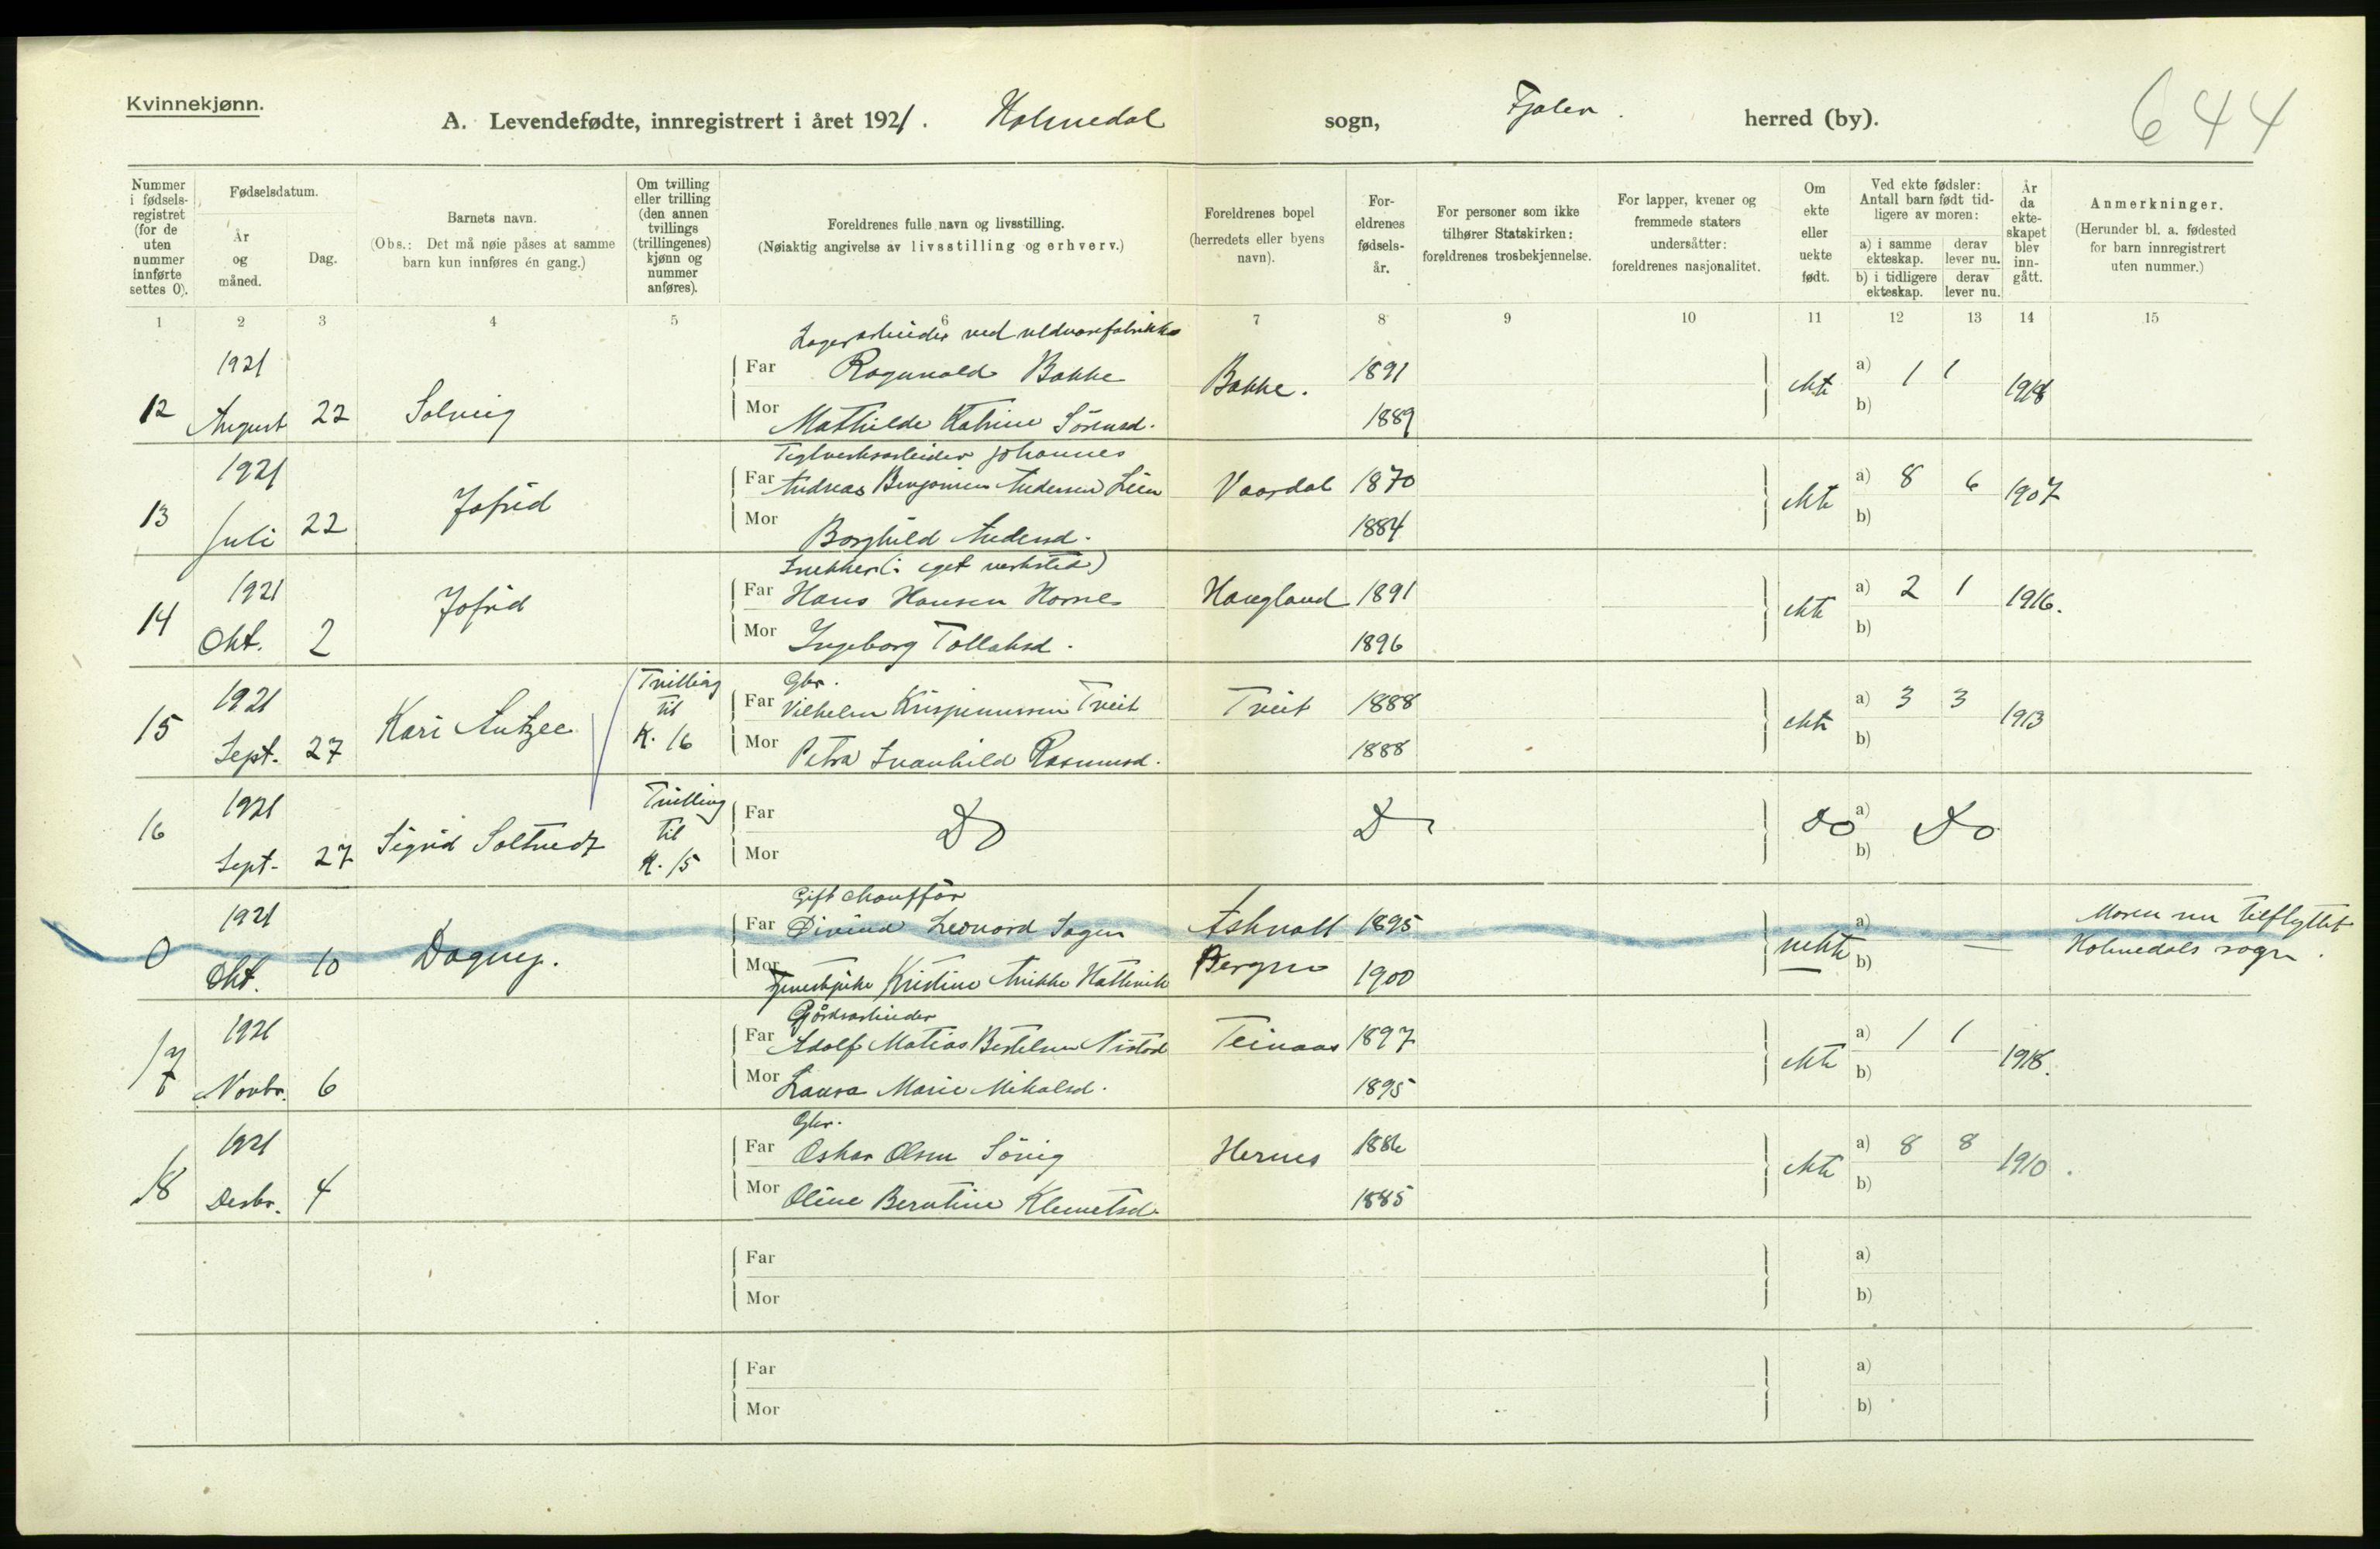 Kvinnekjønn.
A. Levendefødte, innregistrert i året 1921. Holmedal sogn, Fjaler. herred (by).
644
Nummer i fødselsregistret (for de uten nummer innførte settes 0).
Fødselsdatum.
År og måned.
Dag.
Barnets navn.
(Obs.: Det må nøie påses at samme barn kun innføres én gang.)
Om tvilling eller trilling (den annen tvillings (trillingenes) kjønn og nummer anføres).
Foreldrenes fulle navn og livsstilling.
(Nøiaktig angivelse av livsstilling og erhverv.)
Foreldrenes bopel (herredets eller byens navn).
Foreldrenes fødselsår.
For personer som ikke tilhører Statskirken: foreldrenes trosbekjennelse.
For lapper, kvener og fremmede staters undersåtter: foreldrenes nasjonalitet.
Om ekte eller uekte født.
Ved ekte fødsler: Antall barn født tidligere av moren:
a) i samme ekteskap.
derav lever nu.
b) i tidligere ekteskap.
derav lever nu.
År da ekteskapet blev inngått.
Anmerkninger.
(Herunder bl. a. fødested for barn innregistrert uten nummer.)
1 2 3 4 5 6 7 8 9 10 11 12 13 14 15
Lagerarbeider ved uldvarefabrikke
12 1921 August 22 Solveig
Far Ragnvald Bakke Bakke. 1891
Mor Mathilde Katrine Sörensd. 1889
ekte a) 1 1 b) 1918
Teglverksarbeider Johannes
13 1921 Juli 22 Jofrid
Far Andreas Benjamin Andersen Lien Vaardal 1870
Mor Borghild Andersd. 1884
ekte a) 8 6 b) 1907
Snekker (i eget verksted)
14 1921 Okt. 2 Jofrid
Far Hans Hansen Hornes Haugland 1891
Mor Ingeborg Tollaksd. 1896
ekte a) 2 1 b) 1916.
Gbr.
15 1921 Sept. 27 Kari Tvilling til K. 16
Far Vilhelm Krispinussen Tveit Tveit 1888
Mor Petra Svanhild Rasmusd. 1888
ekte a) 3 3 b) 1913
16 1921 Sept. 27 Sigrid Tvilling til K. 15
Far Do Do
Mor
Do a) Do b)
Gift chauffør
0 1921 Okt. 10 Dagny.
Far Eivind Leonard Sagen Askvoll 1895
Mor Tjenestpike Kristine Hattevik Bergen 1900
uekte a) — b)
Moren nu tilflyttet
Holmedals sogn.
Gårdsarbeider
17 1921 Novbr. 6
Far Adolf Matias Bertelsen Nistad Teinaas 1897
Mor Laura Marie Mikalsd. 1895
ekte a) 1 1 b) 1918.
Gbr.
18 1921 Desbr. 4
Far Oskar Olsen Hernes 1886
Mor Oline Berntine Klemetsd. 1885
ekte a) 8 8 b) 1910.
Far
Mor
a)
b)
Far
Mor
a)
b)